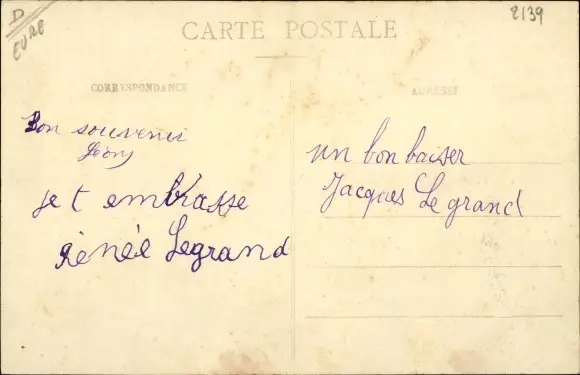 D
EURE
2139
CARTE POSTALE
CORRESPONDANCE
ADRESSE
Bon souvenir
Léon
je t embrasse
Rénée Legrand
un bon baiser
Jacques Legrand